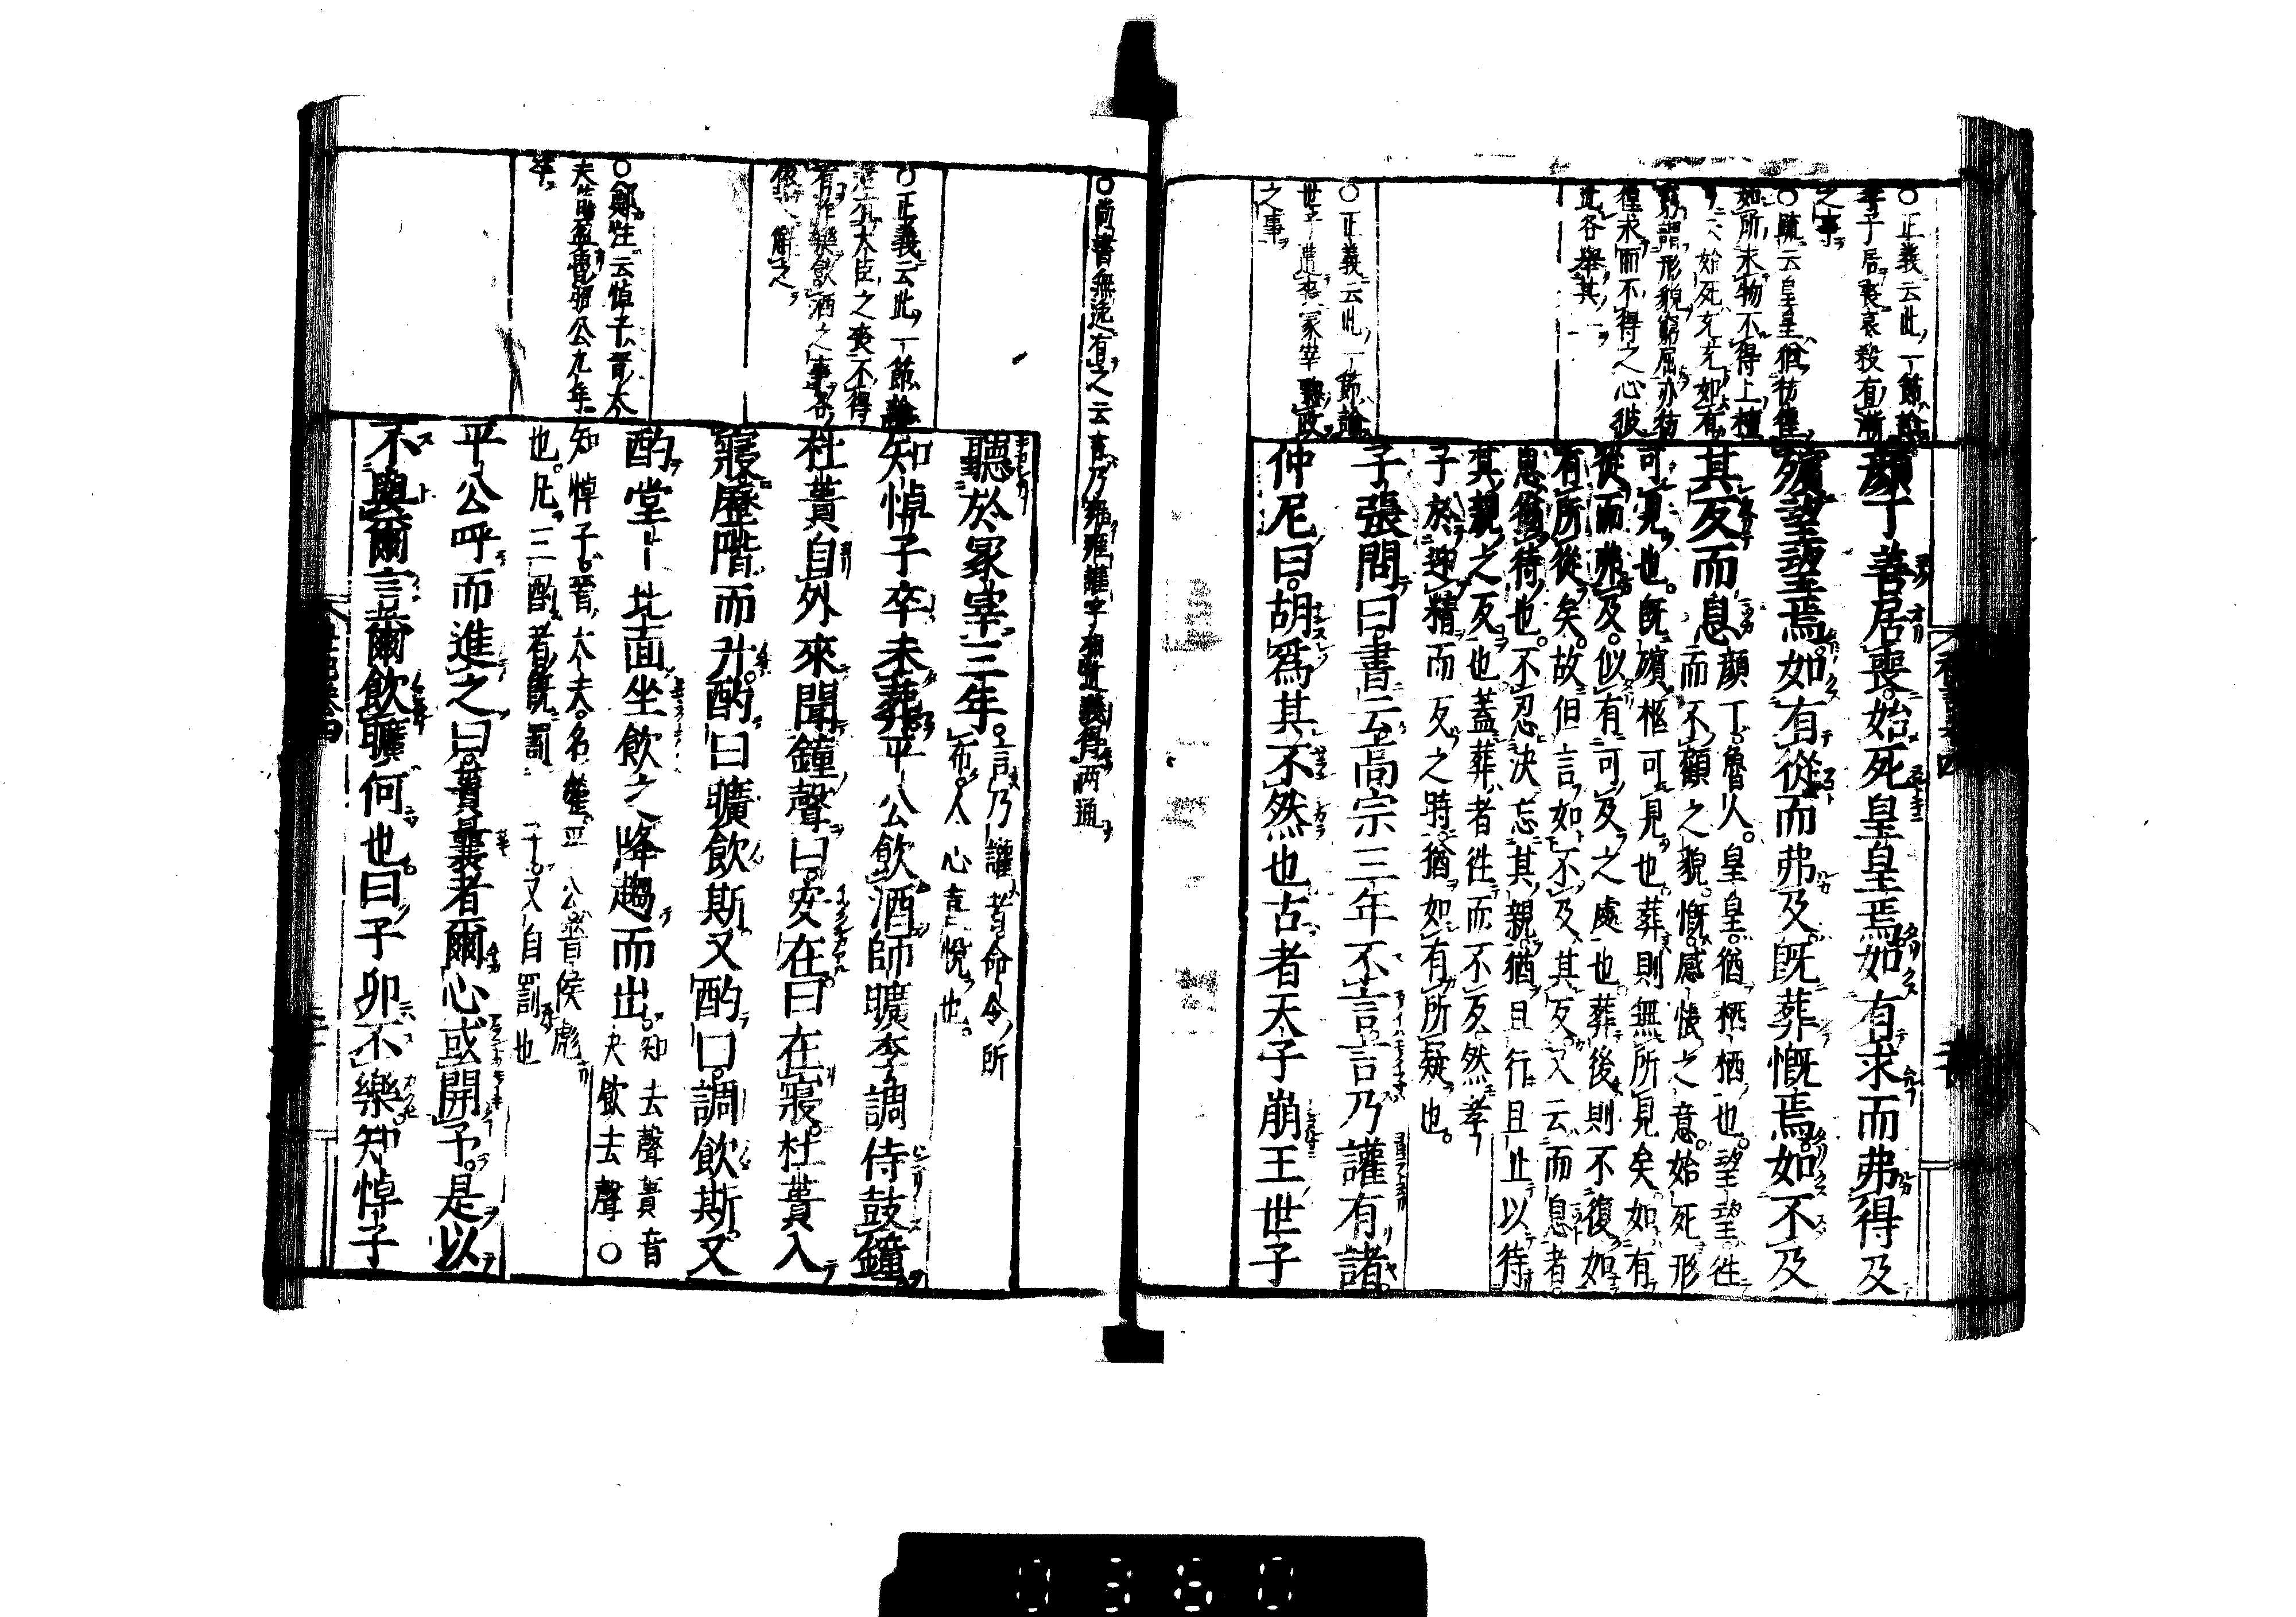 ○正義云此一節論
孝子居喪哀殺有漸
之事
○疏云皇皇猶彷徨
如所求物不得上檀
弓云始死充充如有
窮謂形貌窮屈亦彷
徨求而不得之心彼
此各舉其一
○正義云此一節論
世子遭喪冢宰聽政
之事
顏丁善居喪始死皇皇焉如有求而弗得及
殯望望焉如有從而弗及既葬慨焉如不及
其反而息顏丁魯人皇皇猶栖栖也望望往
而不顧之貌慨感悵之意始死形
可見也既殯柩可見也葬則無所見矣如有
從而弗及似有可及之處也葬後則不復如
有所從矣故但言如不及其反又云而息者
息猶待也不忍決忘其親猶且行且止以待
其親之反也蓋葬者往而不反然孝
子於迎精而反之時猶如有所疑也
子張問曰書云高宗三年不言言乃讙有諸
仲尼曰胡為其不然也古者天子崩王世子
○尚書無逸有之云言乃雍雍讙字相近義得兩通
○正義云此一節論
有作樂飲酒之事各
依文解之
○鄭注云悼子晉大
夫荀盈魯昭公九年
卒
聽於冢宰三年言乃讙者命令所
布人心喜悅也
知悼子卒未葬平公飲酒師曠李調侍鼓鐘
杜蕢自外來聞鐘聲曰安在曰在寢杜蕢入
寢歷階而升酌曰曠飲斯又酌曰調飲斯又
酌堂上北面坐飲之降趨而出知去聲蕢音
夬飲去聲○
知悼子晉大夫名罃平公晉侯彪
也凡三酌者既罰二子又自罰也
平公呼而進之曰蕢曩者爾心或開予是以
不與爾言爾飲曠何也曰子卯不樂知悼子
0360